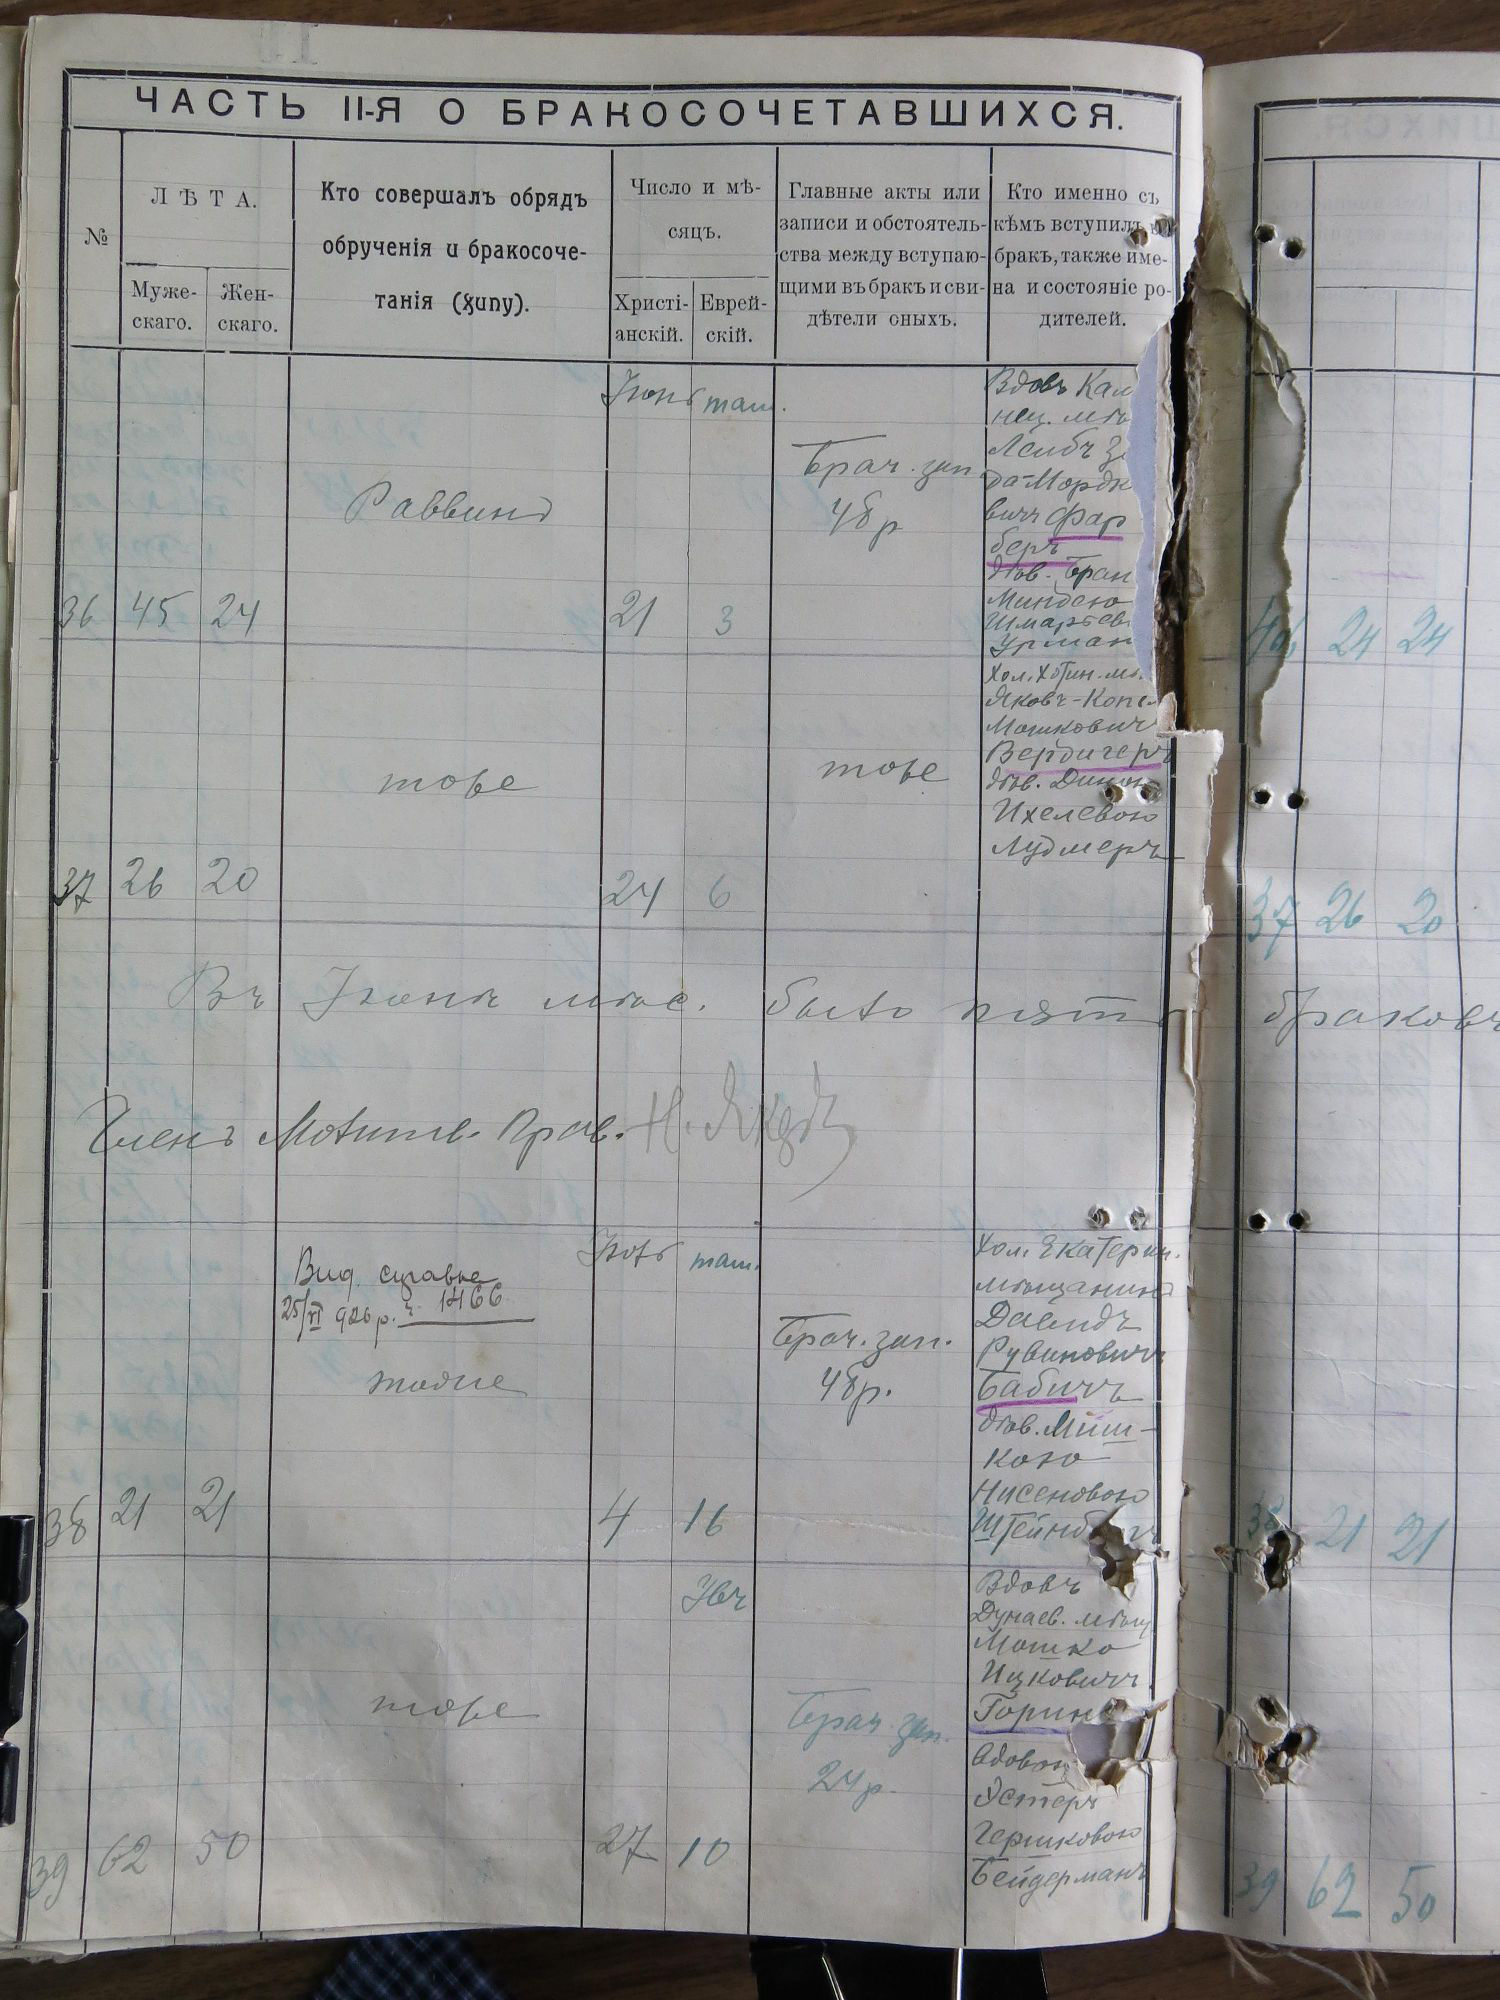 ЧАСТЬ II-Я О БРАКОСОЧЕТАВШИХСЯ.
№
ЛѢТА.
Муже-
скаго.
Жен-
скаго.
Кто совершалъ обрядъ
обрученія и бракосоче-
танія (хупу).
Число и мѣ-
сяцъ.
Христі-
анскій.
Еврей-
скій.
Главные акты или
записи и обстоятель-
ства между вступаю-
щими въ бракъ и сви-
дѣтели оныхъ.
Кто именно съ
кѣмъ вступилъ
бракъ, также име-
на и состояніе ро-
дителей.
36 45 24
Раввинъ
Іюнь там.
21 3
Брач. зап.
48 р
Вдовъ Кам
нец. мѣ
Лейбъ
да-Мордк
вичъ Фар
беръ
дѣв. Бран
Миндею
Шмар
Урман
37 26 20
тоже
24 6
тоже
Хол. Хотин. мѣ
Яковъ-Копел
Мошковичъ
Вердигеръ
дѣв.
Ихелевою
Лудмеръ
Въ Іюнѣ мѣс. было пять браковъ
Членъ Молитв. Прав.
Вид. справка
25/VI 926 р. ч. 1466
38 21 21
тоже
Іюль там.
4 16
Брач. зап.
48 р.
Хол. Екатерин.
мѣщанинъ
Давидъ
Рувиновичъ
Бабичъ
дѣв.
кою
Нисеновою
39 62 50
тоже
27
Увъ
10
Брач. зап.
24 р.
Вдовъ
Дунаев. мѣщ
Мошко
Ицковичъ
Горин
вдовою
Эстеръ
Гершковою
Бейдерманъ
24 24
37 26 20
38 21 21
39 62 50